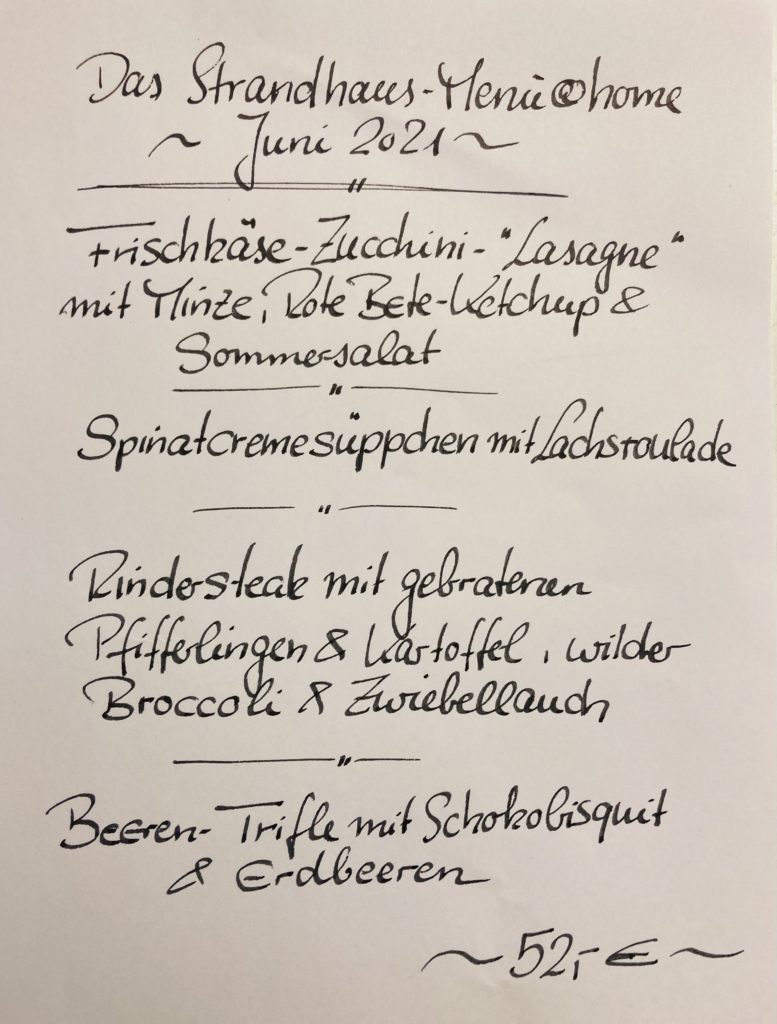 Das Strandhaus-Menü@home
~ Juni 2021 ~
Frischkäse-Zucchini-"Lasagne"
mit Minze, Rote Bete-Ketchup &
Sommersalat
Spinatcremesüppchen mit Lachsroulade
Rindersteak mit gebratenen
Pfifferlingen & Kartoffel, wilder
Broccoli & Zwiebellauch
Beeren-Trifle mit Schokobisquit
& Erdbeeren
~ 52,- € ~